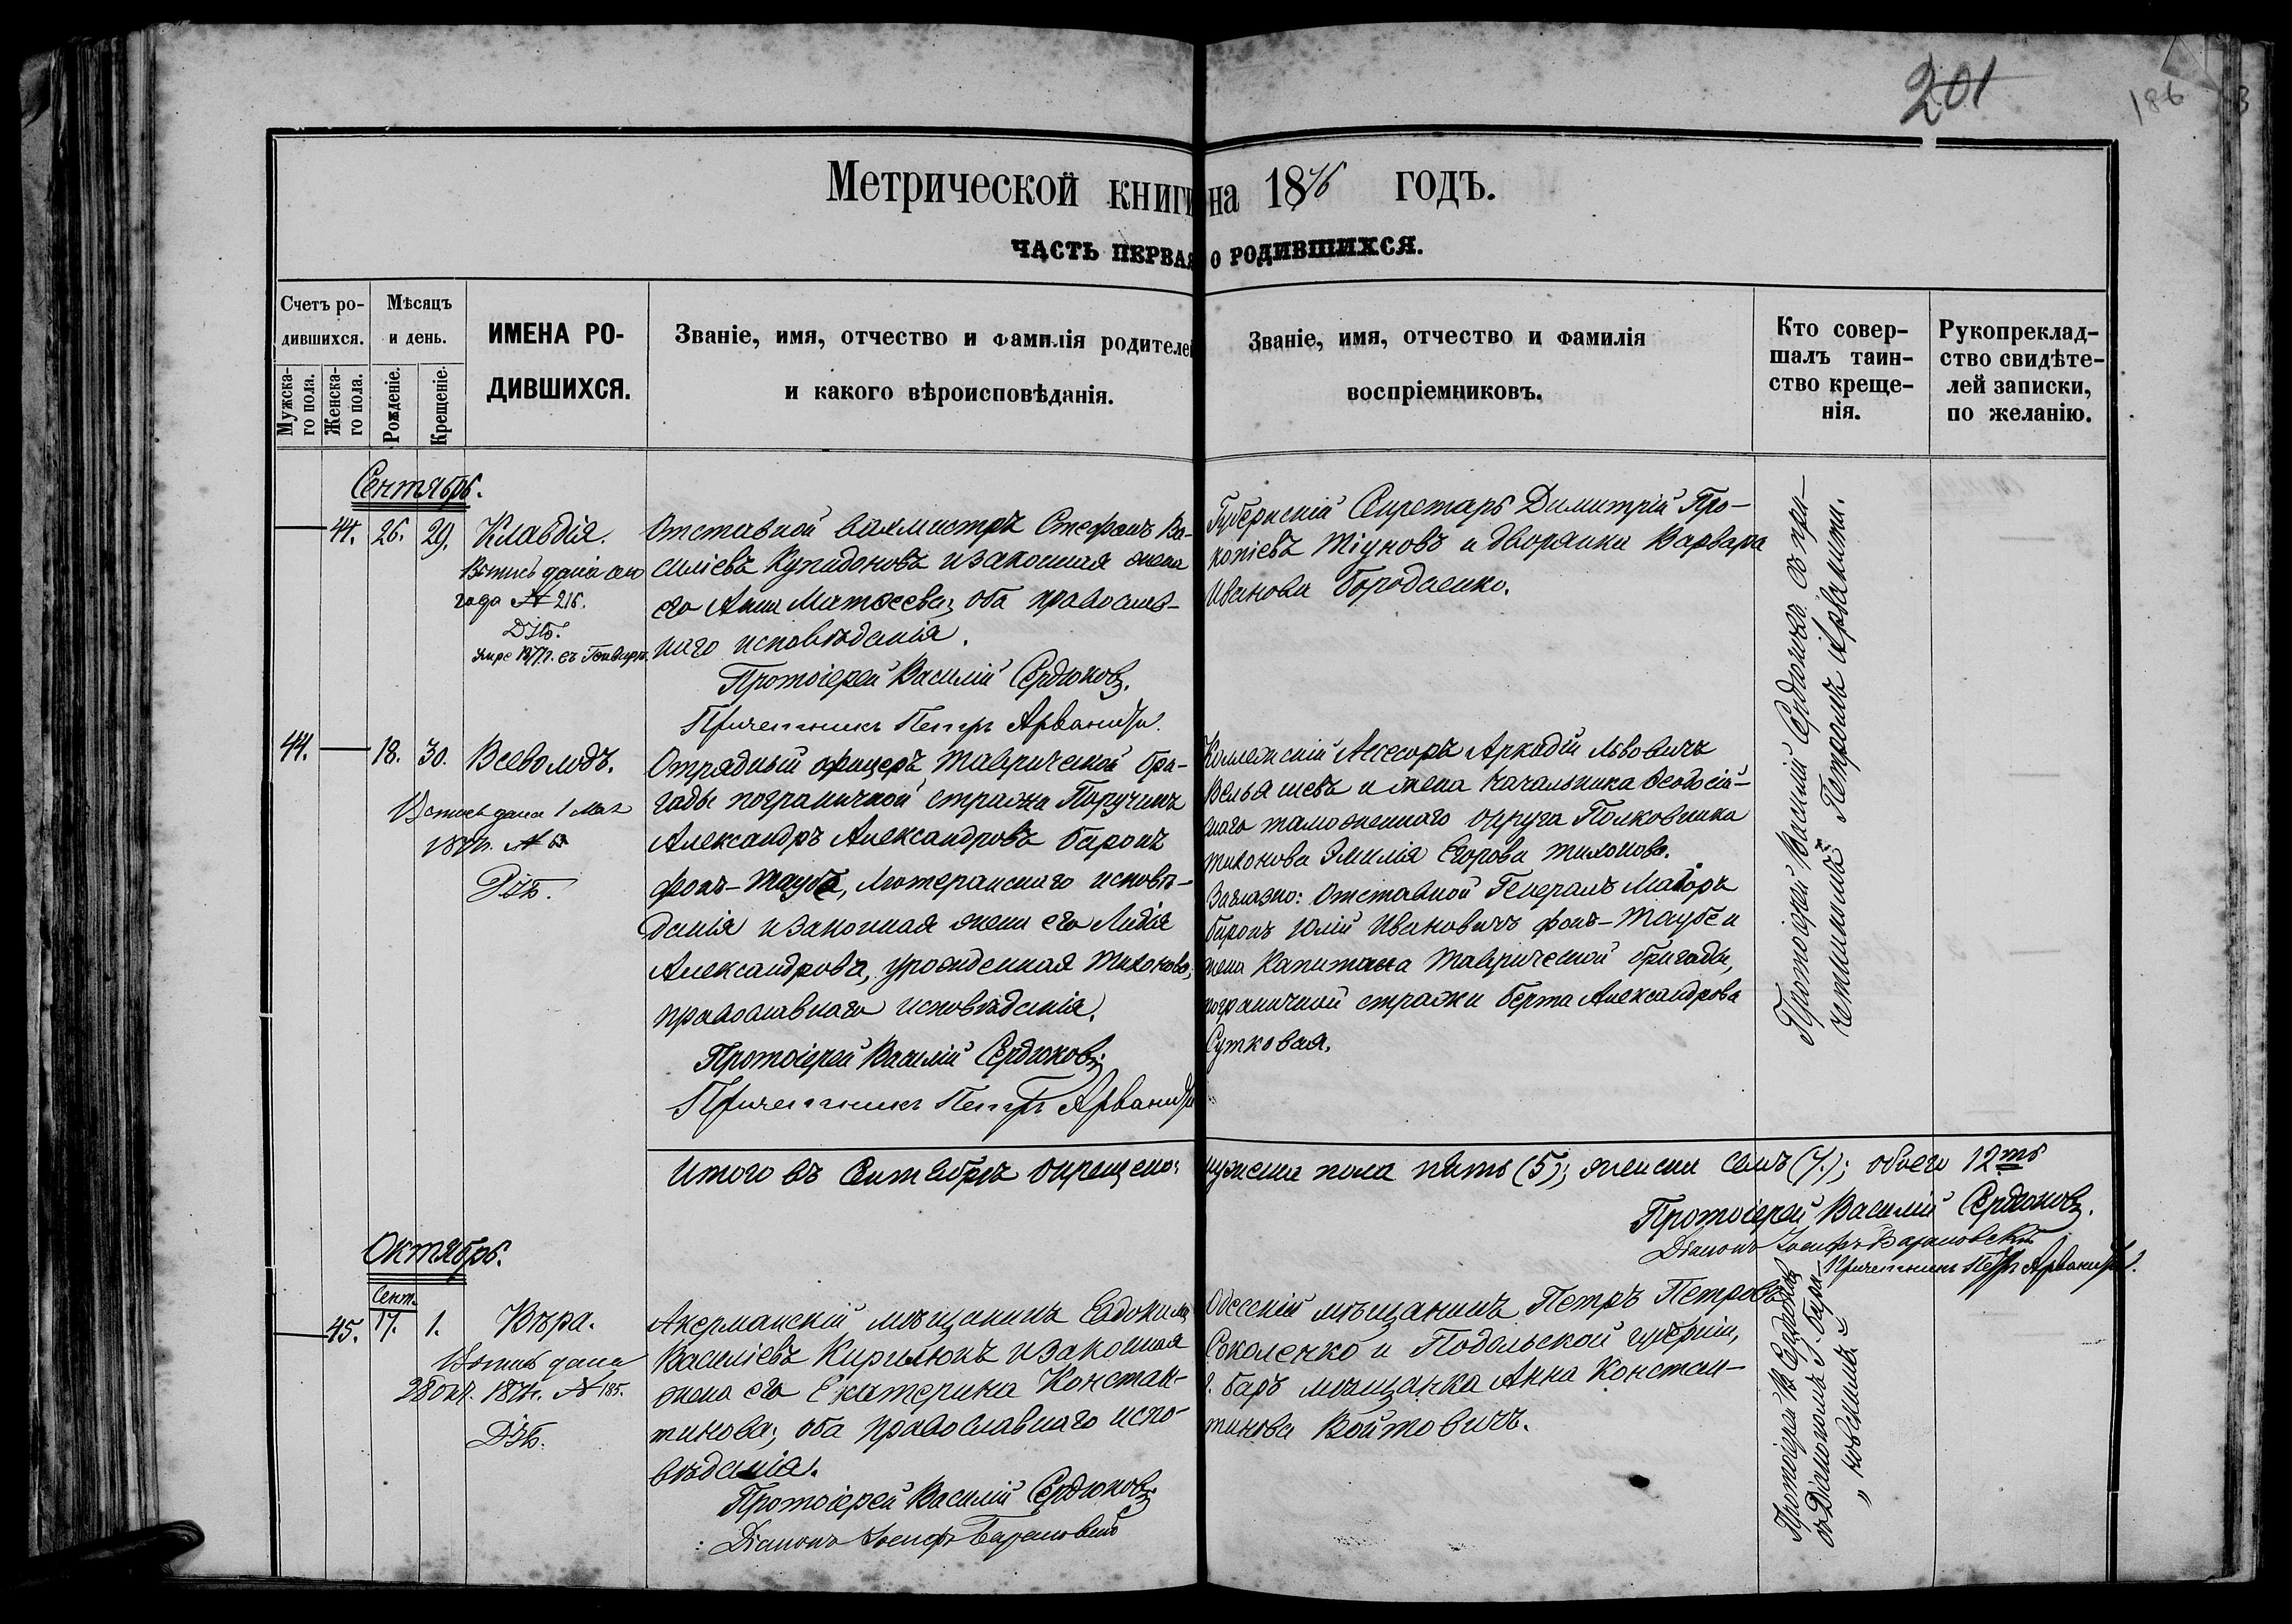 201
186
Метрической книги на 1876 годъ.
ЧАСТЬ ПЕРВАЯ О РОДИВШИХСЯ.
Счетъ ро-
дившихся.
Мужска-
го пола.
Женска-
го пола.
Мѣсяцъ
и день.
Рожденіе.
Крещеніе.
ИМЕНА РО-
ДИВШИХСЯ.
Званіе, имя, отчество и фамилія родителей
и какого вѣроисповѣданія.
Званіе, имя, отчество и фамилія
воспріемниковъ.
Кто совер-
шалъ таин-
ство креще-
нія.
Рукопреклад-
ство свидѣте-
лей записки,
по желанію.
Сентябрь.
44. 26. 29. Клавдія.
Выпись дана сего
года № 216.
Отставной вахмистръ Стефанъ Ва-
силіевъ Купидоновъ и законная жена
его Анна Матѳеева, оба православ-
наго исповѣданія.
Протоіерей Василій Сердюковъ.
Причетникъ Петръ Арваниди.
Губернскій Секретарь Димитрій Про-
копіевъ Тіуновъ и дворянка Варвара
Иванова Бородаенко.
Протоіерей Василій Сердюковъ съ при-
четникомъ Петромъ Арваниди.
44. 18. 30. Всеволодъ.
Выпись дана 1 Мая
Отрядный офицеръ Таврической бри-
гады пограничной стражи Поручикъ
Александръ Александровъ баронъ
фонъ-Таубе, Лютеранскаго исповѣ-
данія и законная жена его Лидія
Александрова, урожденная Тихонова,
православнаго исповѣданія.
Протоіерей Василій Сердюковъ.
Причетникъ Петръ Арваниди
Коллежскій Ассесоръ Аркадій Львовичъ
Вельяшевъ и жена Начальника Ѳеодосій-
скаго таможеннаго округа Полковника
Тихонова Эмилія Егорова Тихонова.
Заглазно: Отставной Генералъ Маіоръ
баронъ Юлій Ивановичъ фонъ-Таубе и
жена Капитана Таврической бригады,
пограничной стражи Берта Александрова
Сутковая.
Итого въ Сентябрѣ окрещено: мужеска пола пять (5); женска семь (7.); обоего 12ть
Протоіерей Василій Сердюковъ.
Діаконъ Іосифъ Барановскій
Причетникъ Петръ Арваниди.
Октябрь.
Сент.
45. 17. 1. Вѣра.
Выпись дана
№ 185.
Акерманскій мѣщанинъ Евдокимъ
Василіевъ Кирилюкъ и законная
жена его Екатерина Констан-
тинова; оба православнаго испо-
вѣданія.
Протоіерей Василій Сердюковъ.
Діаконъ Іосифъ Барановскій
Одесскій мѣщанинъ Петръ Петровъ
Соколенко и Подольской губерніи,
г. Баръ мѣщанка Анна Констан-
тинова Войтовичъ.
Протоіерей В. Сердюковъ
съ Діакономъ І. Бара-
новскимъ